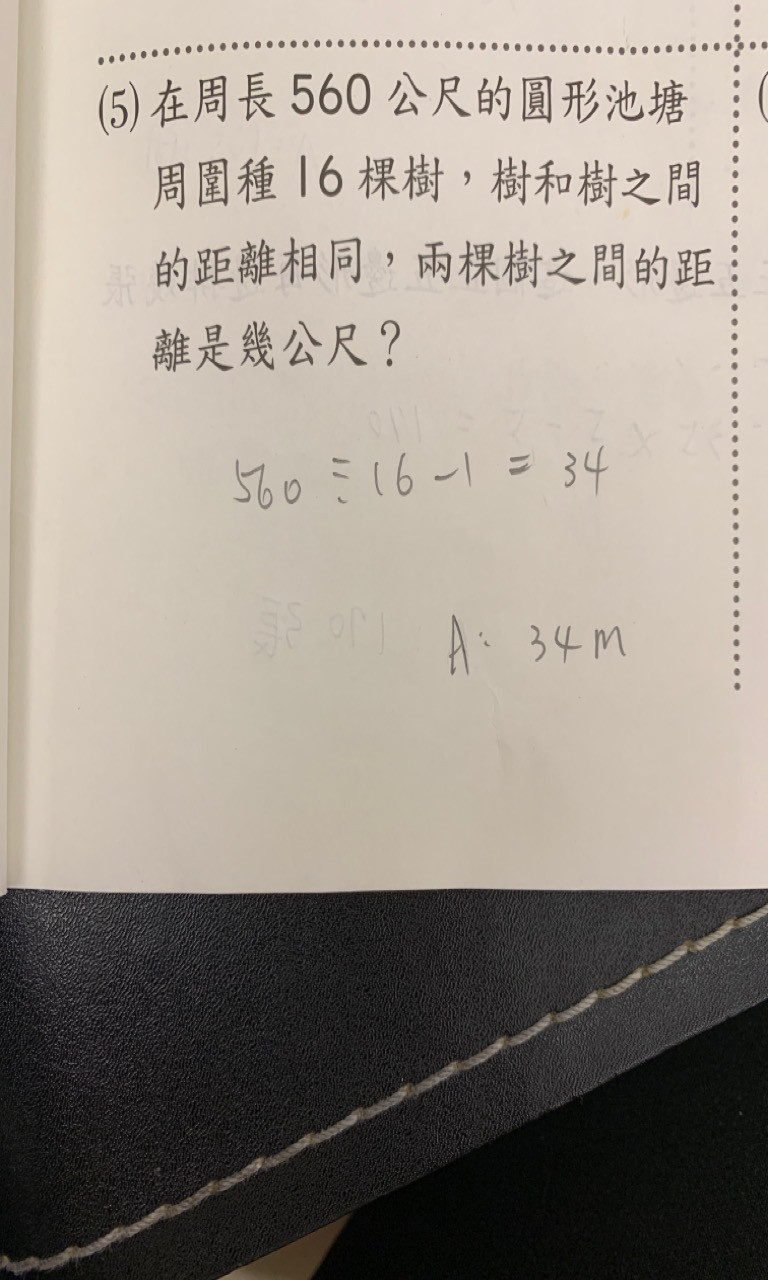 (5) 在周長 560 公尺的圓形池塘
周圍種 16 棵樹，樹和樹之間
的距離相同，兩棵樹之間的距
離是幾公尺？
560 ÷ 16 - 1 = 34
A: 34m